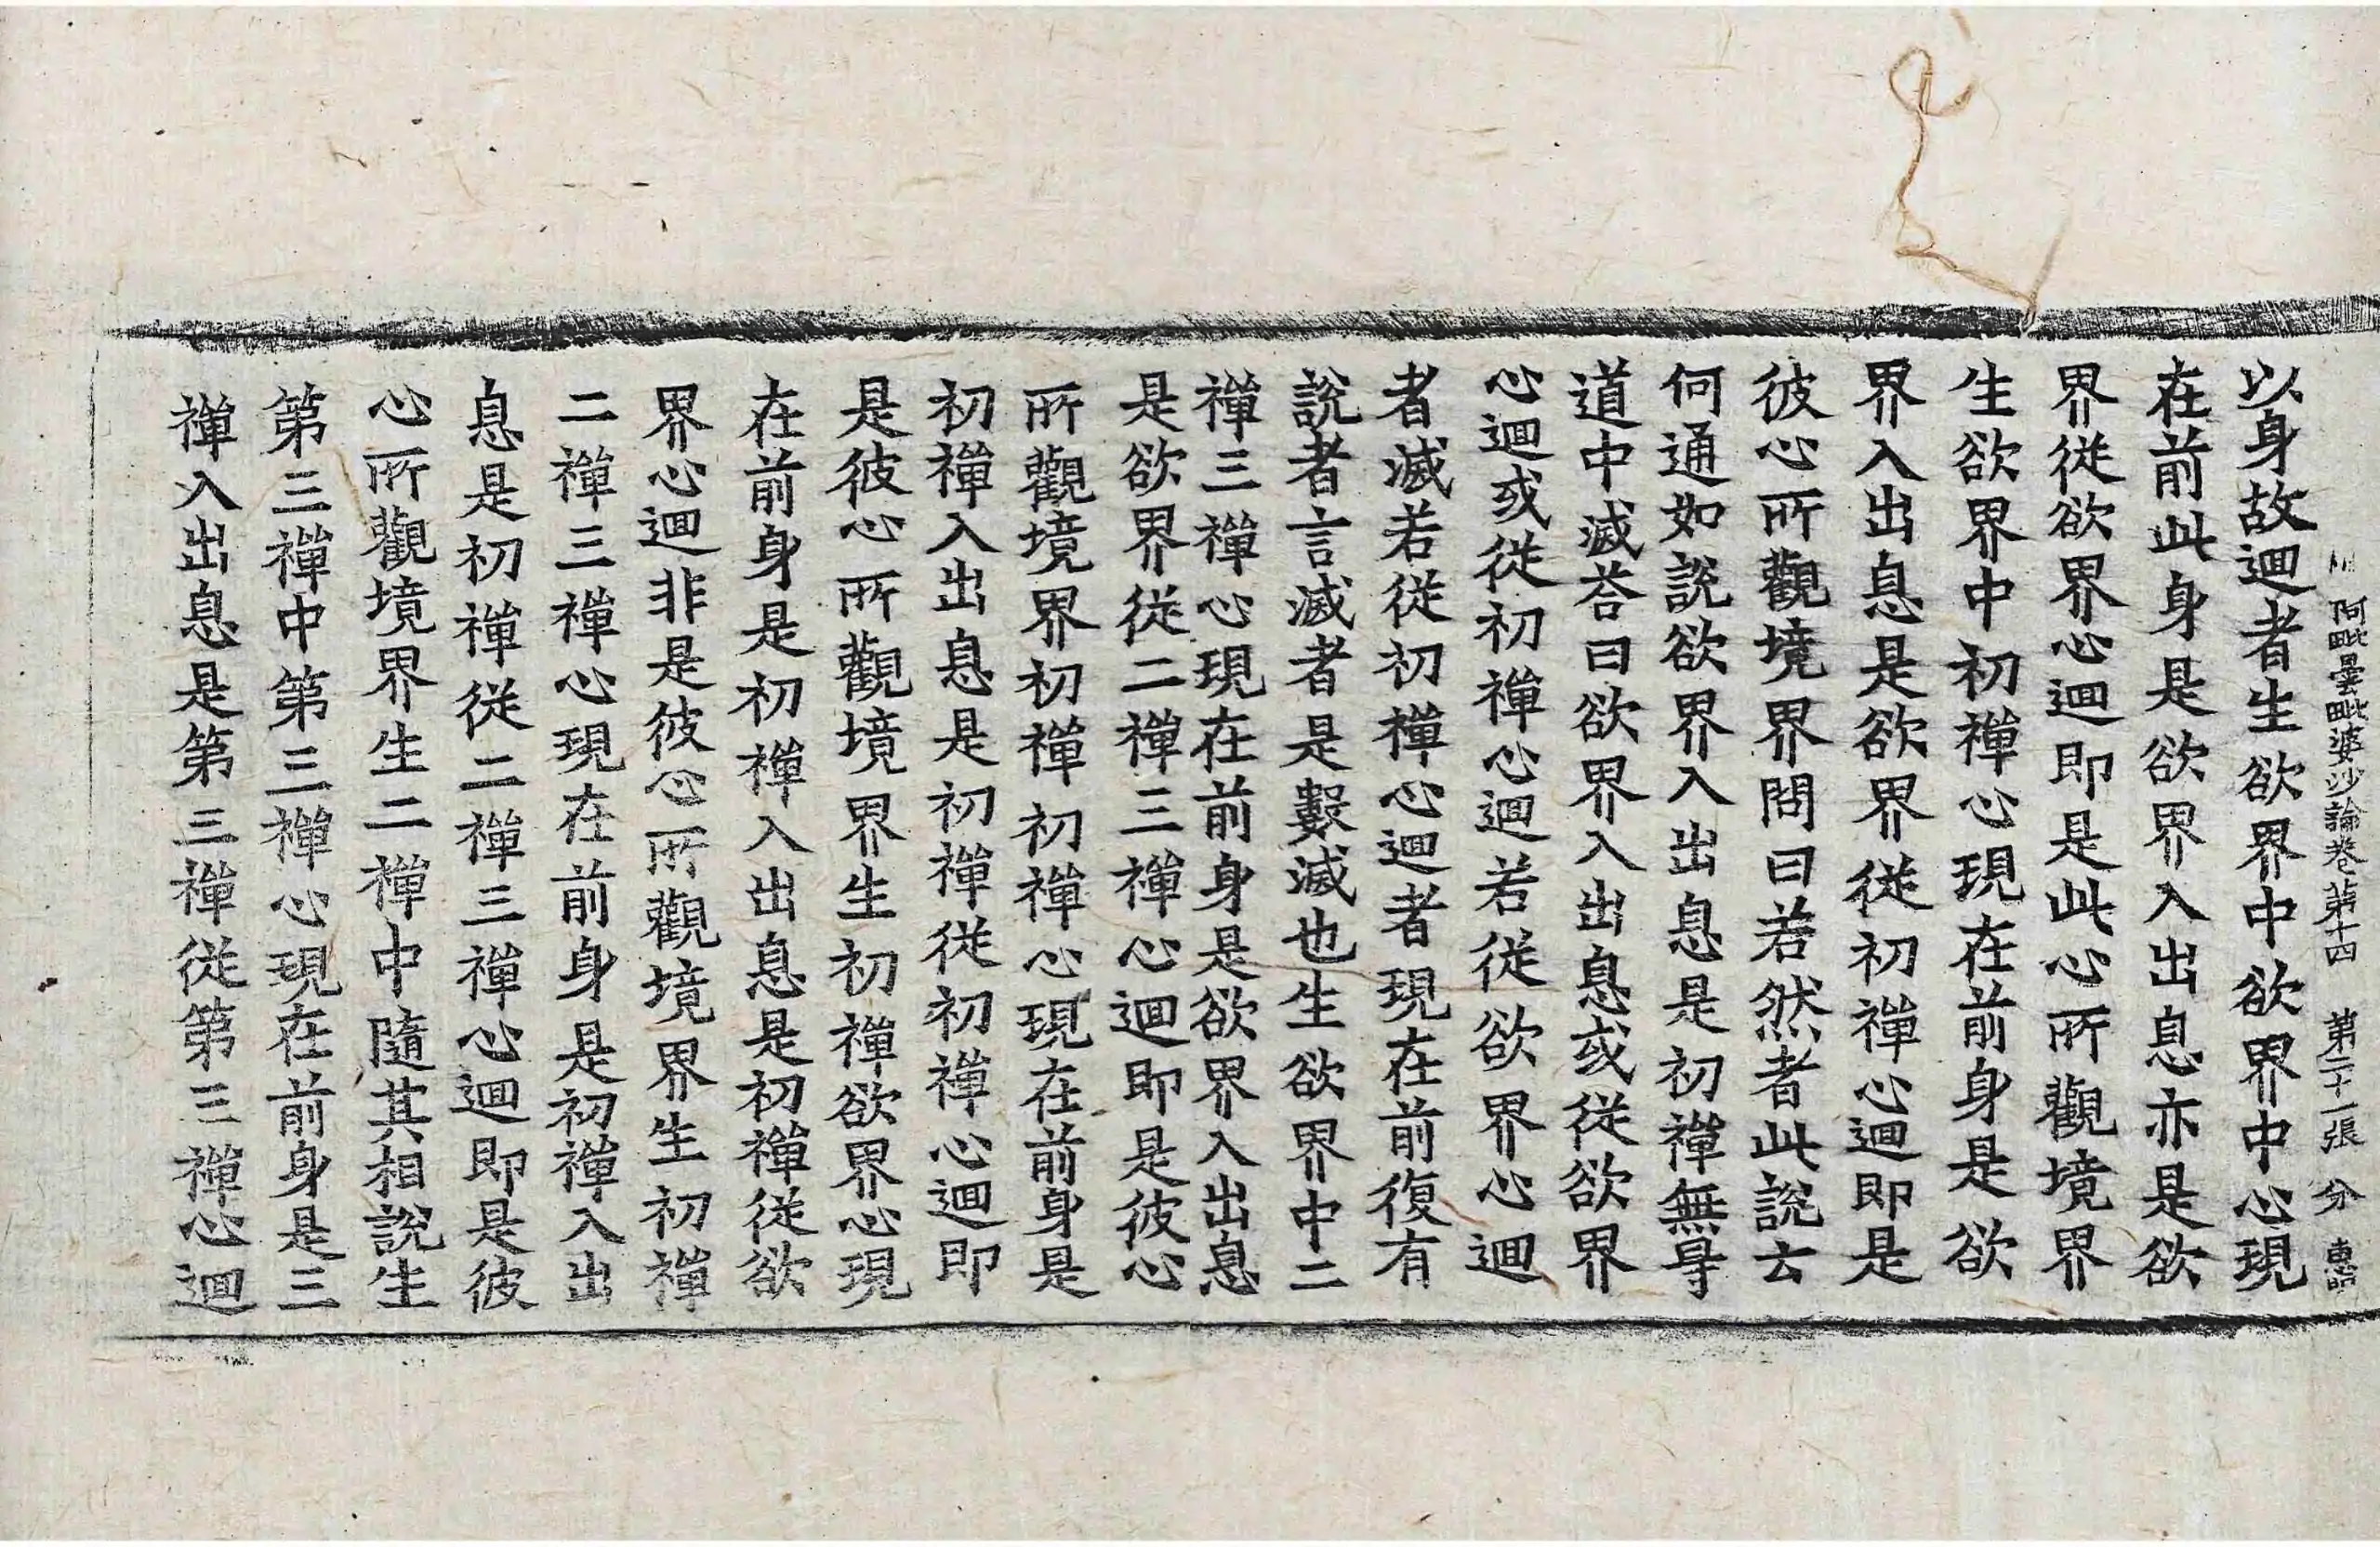 阿毗曇毗婆沙論卷第十四 第二十一張 分 惠
以身故迴者生欲界中欲界中心現
在前此身是欲界入出息亦是欲
界從欲界心迴即是此心所觀境界
生欲界中初禪心現在前身是欲
界入出息是欲界從初禪心迴即是
彼心所觀境界問曰若然者此說云
何通如說欲界入出息是初禪無㝵
道中滅荅曰欲界入出息或從欲界
心迴或從初禪心迴若從欲界心迴
者滅若從初禪心迴者現在前復有
說者言滅者是數滅也生欲界中二
禪三禪心現在前身是欲界入出息
是欲界從二禪三禪心迴即是彼心
所觀境界初禪初禪心現在前身是
初禪入出息是初禪從初禪心迴即
是彼心所觀境界生初禪欲界心現
在前身是初禪入出息是初禪從欲
界心迴非是彼心所觀境界生初禪
二禪三禪心現在前身是初禪入出
息是初禪從二禪三禪心迴即是彼
心所觀境界生二禪中隨其相說生
第三禪中第三禪心現在前身是三
禪入出息是第三禪從第三禪心迴